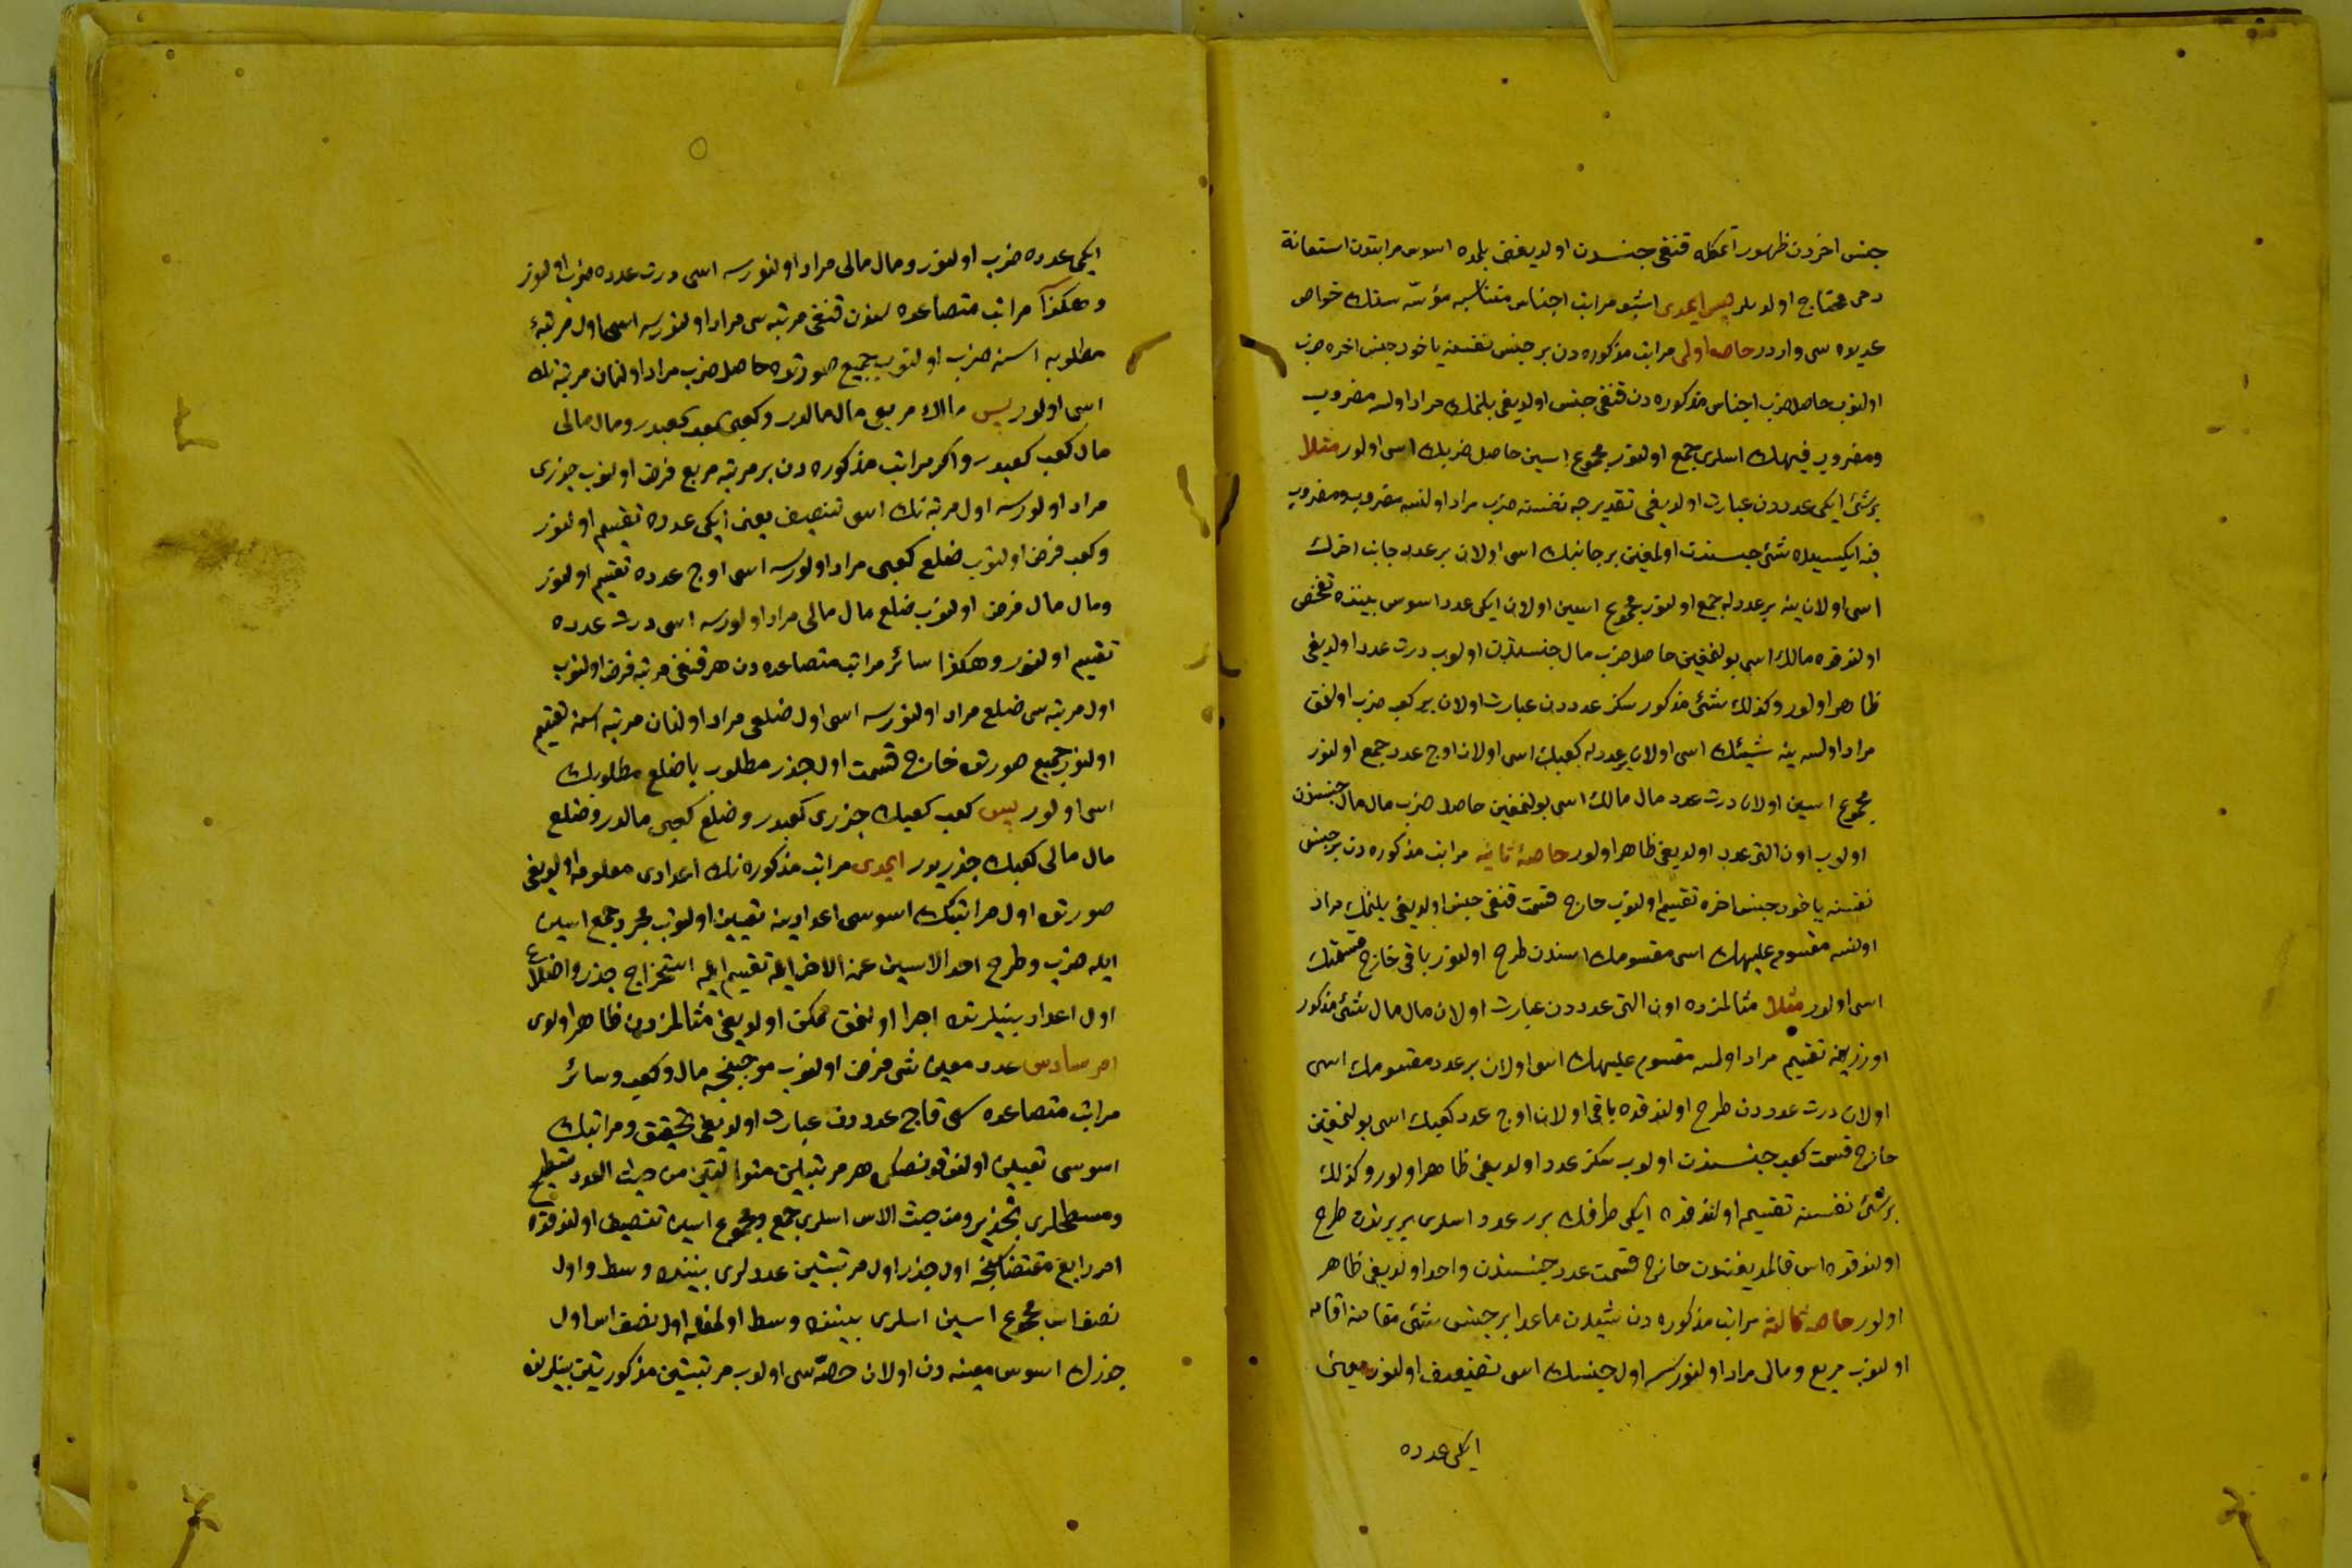 جنس اخردن ظهور ایتمكله قنغی جنسدن اولدیغن بلمده اسوس مراتبدن استعانة
دخی محتاج اولدیلر پس ایمدی اشبو مراتب اجناس متناسبه مؤسسه سنك خواص
عدیده سی واردر خاصه اولی مراتب مذكوره دن بر جنس نفسنه یاخود جنس اخره ضرب
اولنوب حاصل ضرب اجناس مذكوره دن قنغی جنس اولدیغی بلنمك مراد اولسه مضروب
ومضروب فیهك اسلری جمع اولنور مجموع اسین حاصل ضربك اسی اولور مثلا
بر شئ ایكی عدددن عبارت اولدیغی تقدیرجه نفسنه ضرب مراد اولنسه مضروب ومضروب
فیه ایكیسیده شئ جنسندن اولمغین بر جانبك اسی اولان بر عدد جانب اخرك
اسی اولان ینه بر عددله جمع اولنور مجموع اسین اولان ایكی عدد اسوس بیننده تفحص
اولندقده مالك اسی بولنغین حاصل ضرب مال جنسندن اولوب درت عدد اولدیغی
ظاهر اولور وكذلك شئ مذكور سكز عدددن عبارت اولان بر كعبه ضرب اولنمق
مراد اولسه ینه شیئك اسی اولان بر عددله كعبك اسی اولان اوج عدد جمع اولنور
مجموع اسین اولان درت عدد مال مالك اسی بولنمغین حاصل ضرب مال مال جنسندن
اولوب اون التی عدد اولدیغی ظاهر اولور خاصهٔ ثانیه مراتب مذكوره دن بر جنس
نفسنه یاخود جنس اخره تقسیم اولنوب خارج قسمت قنغی جنس اولدیغی بلنمك مراد
اولنسه مقسوم علیهك اسی مقسومك اسندن طرح اولنور باقی خارج قسمتك
اسی اولور مثلا مثالمزده اون التی عدددن عبارت اولان مال مال شئ مذكور
اوزرینه تقسیم مراد اولسه مقسوم علیهك اسی اولان بر عدد مقسومك اسی
اولان درت عدددن طرح اولندقده باقی اولان اوج عدد كعبك اسی بولنمغین
خارج قسمت كعب جنسندن اولوب سكز عدد اولدیغی ظاهر اولور وكذلك
بر شئ نفسنه تقسیم اولندقده ایكی طرفك برر عدد اسلری بربرندن طرح
اولندقده اس قالمدیغندن خارج قسمت عدد جنسندن واحد اولدیغی ظاهر
اولور خاصه ثالثه مراتب مذكوره دن شیئدن ماعدا بر جنس شئ مقامنه اقامه
اولنوب مربع ومالی مراد اولنورسه اول جنسك اسی تضعیف اولنور یعنی
ایكی عدده
ایكی عدده ضرب اولنور ومال مالی مراد اولنورسه اسی درت عدده ضرب اولنور
وهكذا مراتب متصاعده سندن قنغی مرتبه سی مراد اولنورسه اسی اول مرتبهٔ
مطلوبه اسنه ضرب اولنوب جمیع صورتده حاصل ضرب مراد اولنان مرتبه نك
اسی اولور پس مالك مربعی مال مالدر وكعبی كعب كعبدر ومال مالی
مال كعب كعبدر واكر مراتب مذكوره دن بر مرتبه مربع فرض اولنوب جذری
مراد اولورسه اول مرتبه نك اسی تنصیف یعنی ایكی عدده تقسیم اولنور
وكعب فرض اولنوب ضلع كعبی مراد اولورسه اسی اوج عدده تقسیم اولنور
ومال مال فرض اولنوب ضلع مال مالی مراد اولورسه اسی درت عدده
تقسیم اولنور وهكذا سائر مراتب متصاعده دن هر قنغی مرتبه فرض اولنوب
اول مرتبه سی ضلع مراد اولنورسه اسی اول ضلعی مراد اولنان مرتبه اسنه تقسیم
اولنور جمیع صورتده خارج قسمت اول جذر مطلوب یا ضلع مطلوبك
اسی اولور پس كعب كعبك جذری كعبدر وضلع كعبی مالدر وضلع
مال مالی كعبك جذریدر ایمدی مراتب مذكوره نك اعدادی معلومه اولدیغی
صورتده اول مراتبك اسوسی اعدادینه تعیین اولنوب مجرد جمع اسین
ایله ضرب وطرح احد الاسین عن الاخر ایله تقسیم ایله استخراج جذر واضلاع
اول اعداد بینلرنده اجرا اولنمق ممكن اولدیغی مثالمزدن ظاهر اولدی
امر سادس عدد معین شئ فرض اولنوب موجبنجه مال وكعب وسائر
مراتب متصاعده سی قاج عدددن عبارت اولدیغی تحقیق ومراتبك
اسوسی تعیین اولندقدنصكره هر مرتبتین متوالیتین من حیث العدد تسطیح
ومسطحلری تجذیر ومن حیث الاس اسلری جمع ومجموع اسین تنصیف اولندقده
امر رابع مقتضاسنجه اول جذر اول مرتبتین عددلری بیننده وسط واول
نصف اس مجموع اسین اسلری بیننده وسط اولمغله اول نصف اس اول
جذرك اسوس معینه دن اولان حصه سی اولوب مرتبتین مذكورتین بینلرنده